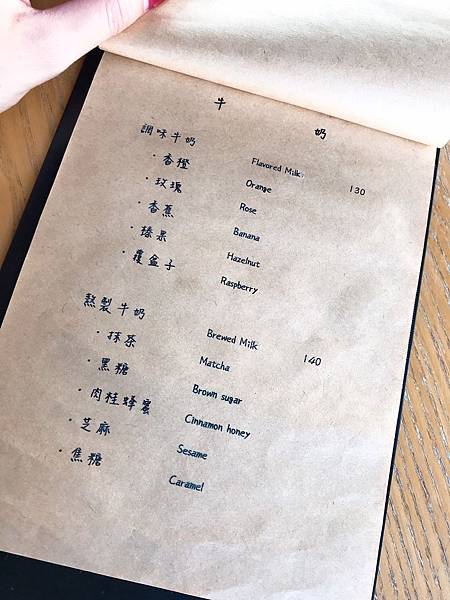 牛 奶
調味牛奶 Flavored Milk 130
・香橙 Orange
・玫瑰 Rose
・香蕉 Banana
・榛果 Hazelnut
・覆盆子 Raspberry
熬製牛奶 Brewed Milk 140
・抹茶 Matcha
・黑糖 Brown sugar
・肉桂蜂蜜 Cinnamon honey
・芝麻 Sesame
・焦糖 Caramel